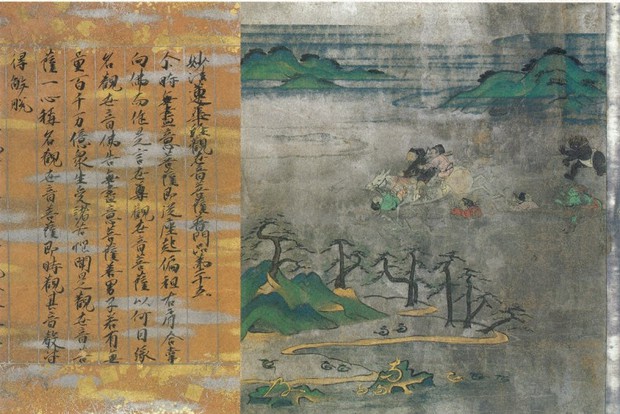 妙法蓮華経觀世音菩薩普門品第二十五
尒時無盡意菩薩即従座起偏袒右肩合掌
向佛而作是言世尊觀世音菩薩以何因縁
名觀世音佛告無盡意菩薩善男子若有无
量百千万億衆生受諸苦惱聞是觀世音菩
薩一心稱名觀世音菩薩即時觀其音聲皆
得解脱